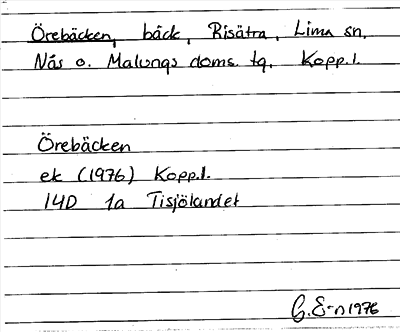 Örebäcken, bäck, Risätra, Lima sn.
Nås o. Malungs doms. tg. Kopp.l.
Örebäcken
ek (1976) Kopp.l.
14D 1a Tisjölandet
G.E-n 1976